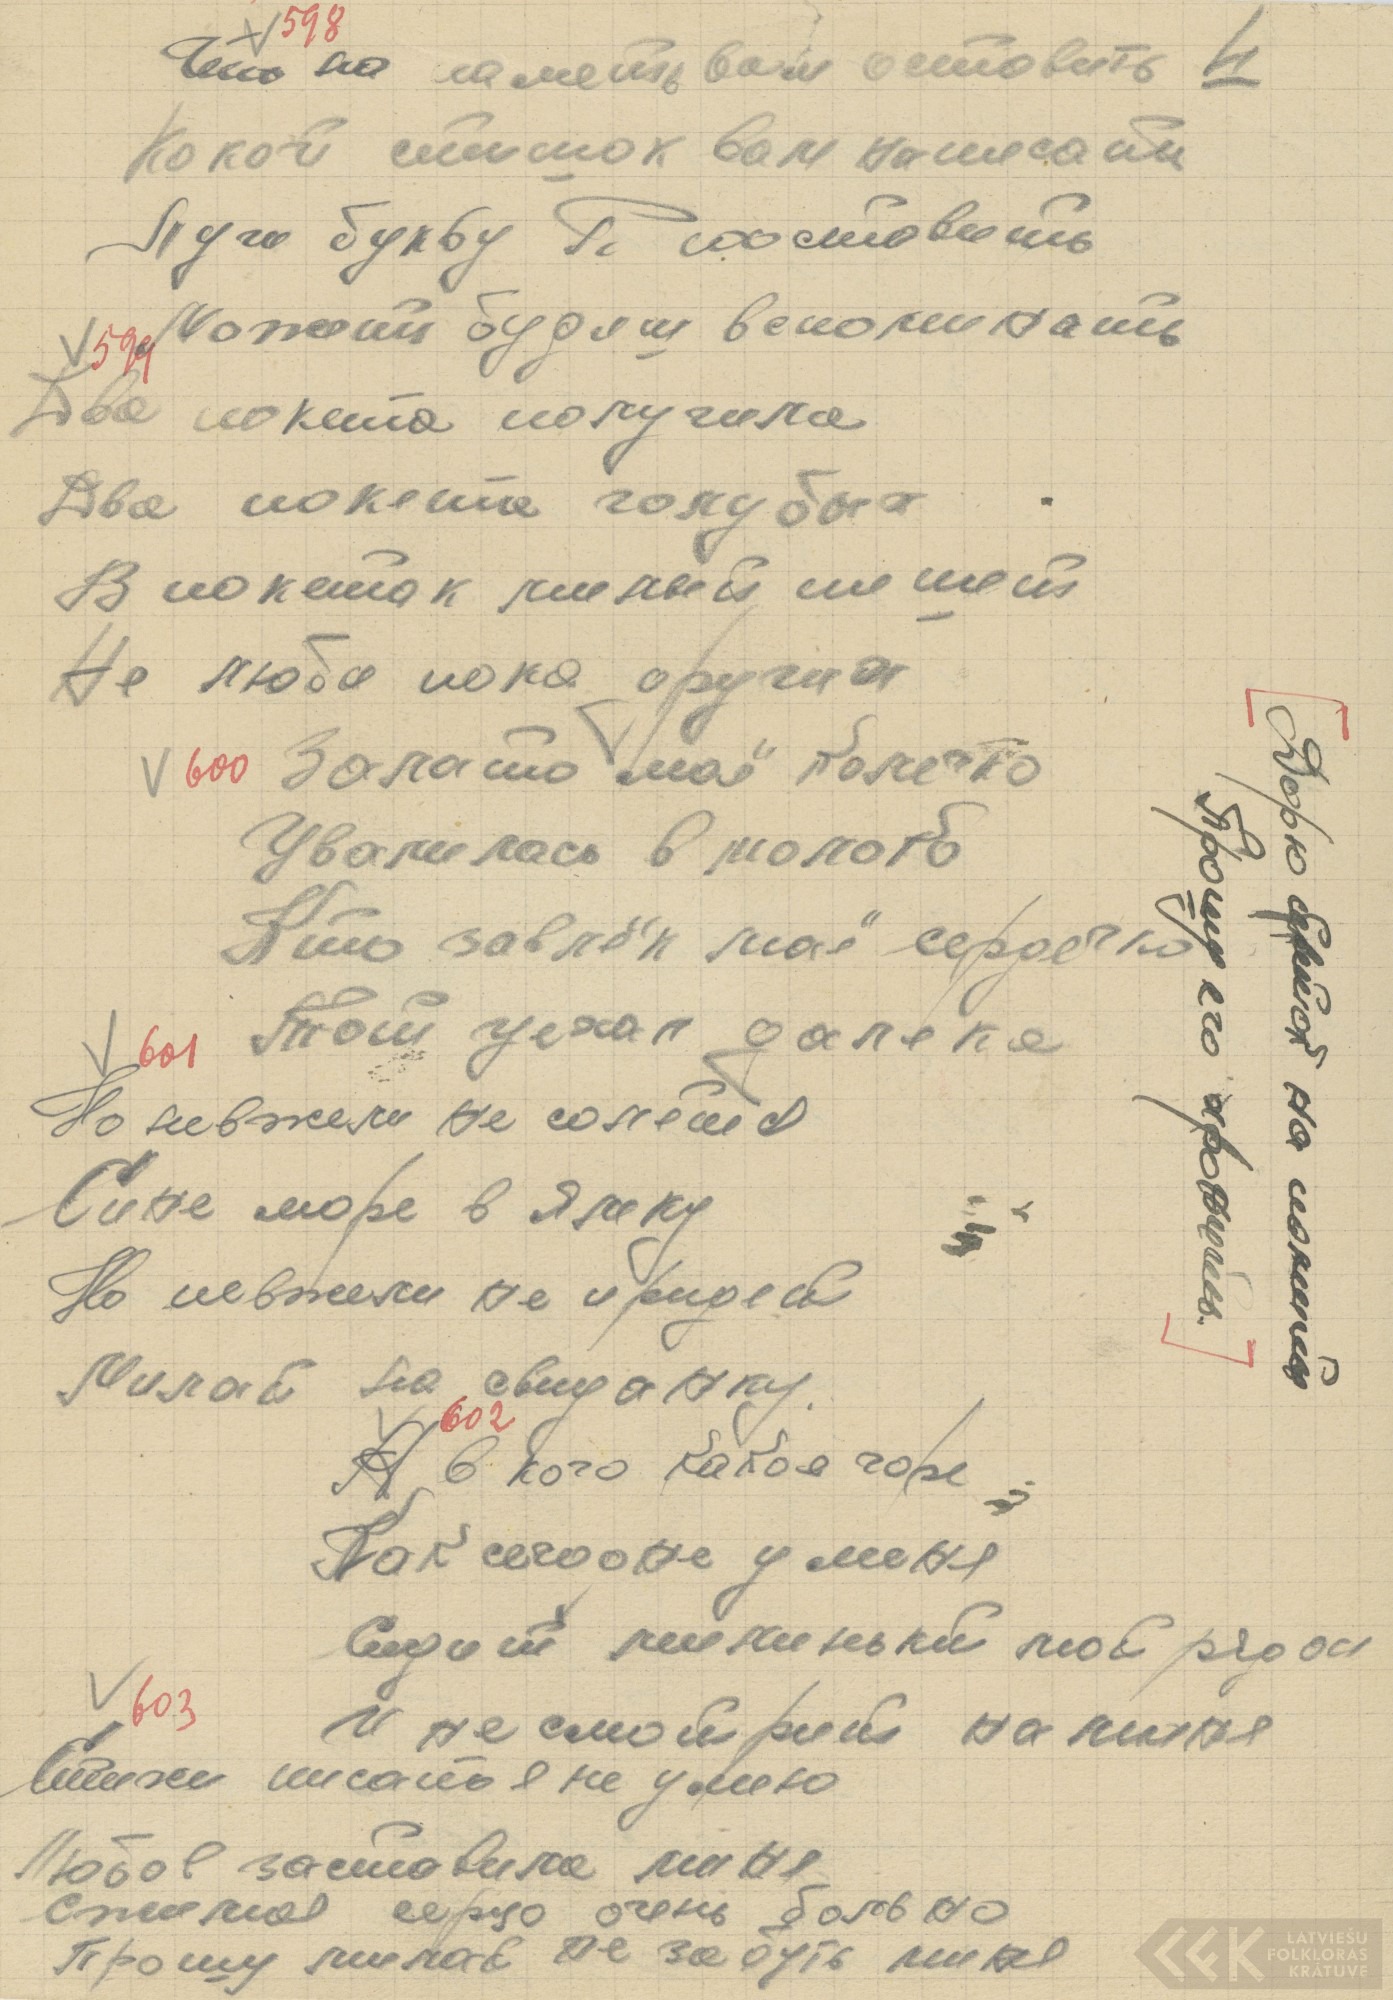 598
Что на паметь вам оставить 4
Кокой стишок вам написать
Лучи букву П поставить
Можеть будеш вспоминать
599
Два покета получила
Два покета голубых
В покетак милый пишет
Не люби пока других
600 Залато маё колечко
Увалилась в молоко
Кто завлёк маё сердечко
601 Тот уехал далека
Но невжели не солётца
Сине море в ямку
Но невжели не придей
Милай на свиданку.
602
А в кого какоя горе
Как сегодне у мене
Сидит милинькй мой рядом
603 И не смотрит на мине
Стихи писать я не умею
Любов заставила мине
Сжимае серцо очень больно
Прошу милай не забуть мине
[Дарю на паметь
Прошу его хронить.]
LATVIEŠU
FOLKLORAS
KRĀTUVE